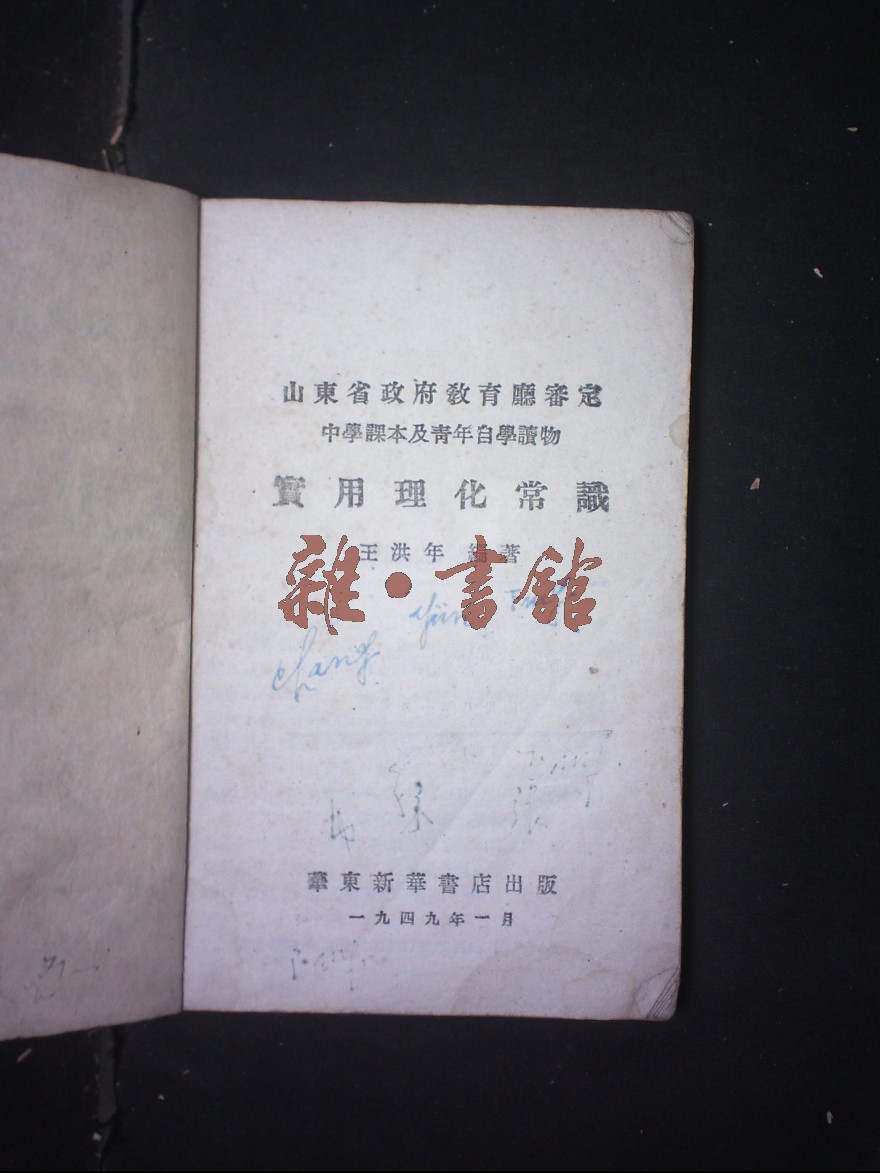 山東省政府敎育廳審定
中學課本及靑年自學讀物
實用理化常識
王洪年 編著
雜·書館
chang yün
張
華東新華書店出版
一九四九年一月